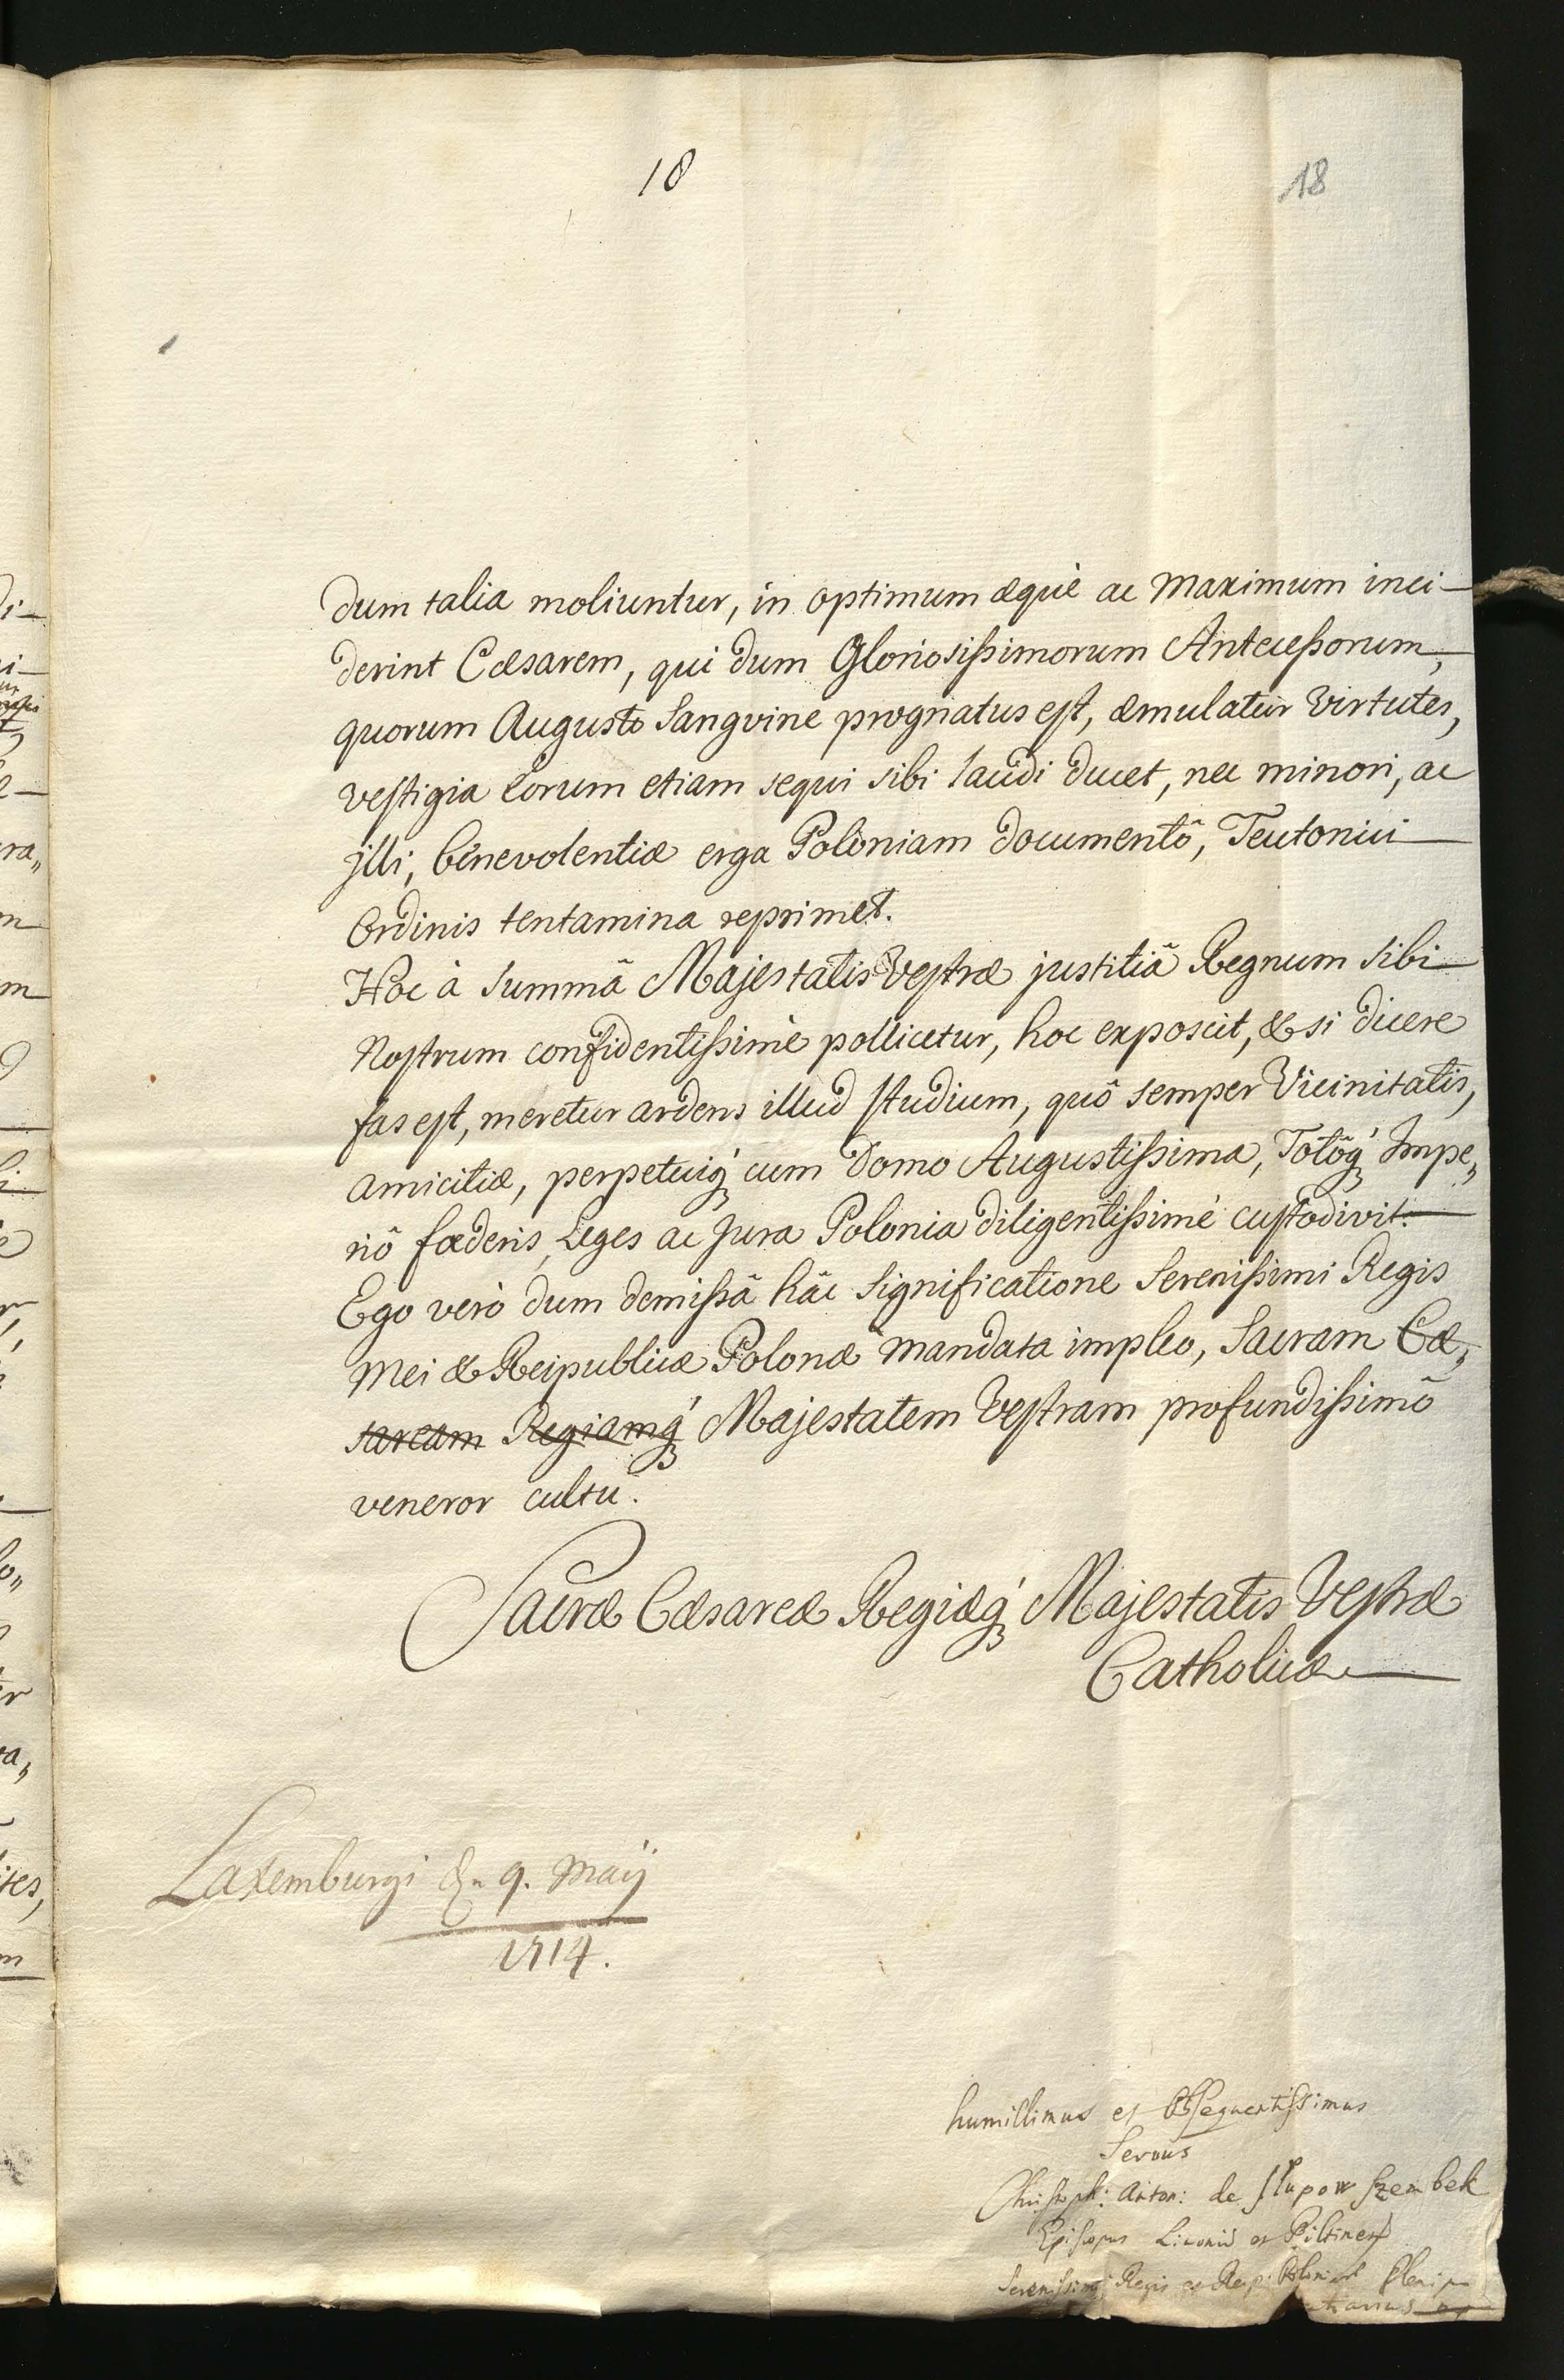 18
18
dum talia moliuntur, in optimum æquè ac Maximum inci-
derint Cæsarem, qui dum Gloriosissimorum Antecessorum,
quorum Augusto Sangvine prognatus est, æmulatur Virtutes,
vestigia eorum etiam sequi sibi laudi ducet, nec minori, ac
jlli, benevolentiæ erga Poloniam documentô, Teutonici
Ordinis tentamina reprimet.
Hoc à Summâ Majestatis Vestræ justitiâ Regnum sibi
Nostrum confidentissimè pollicetur, hoc exposcit, & si dicere
fas est, meretur ardens illud studium, quô semper Vicinitatis,
amicitiæ, perpetuiq́ cum Domo Augustissima, Totôq́ Impe„
riô fœderis, Leges ac Jura Polonia diligentissimè custodivit.
Ego verò dum demissâ hâc significatione Serenissimi Regis
Mei & Reipublicæ Polonæ mandata impleo, Sacram Cæ„
saream Regiamq́ Majestatem Vestram profundissimô
veneror cultu.
Sacræ Cæsareæ Regiæq́ Majestatis Vestræ
Catholicæ
Laxemburgi 9. Maij
1714.
humillimus et Obsequentissimus
Servus
Christoph: Anton: de Słupow Szembek
Episcopus Livoniæ et Piltinen
Serenissimi Regis et Reip: Poloniæ Pleni